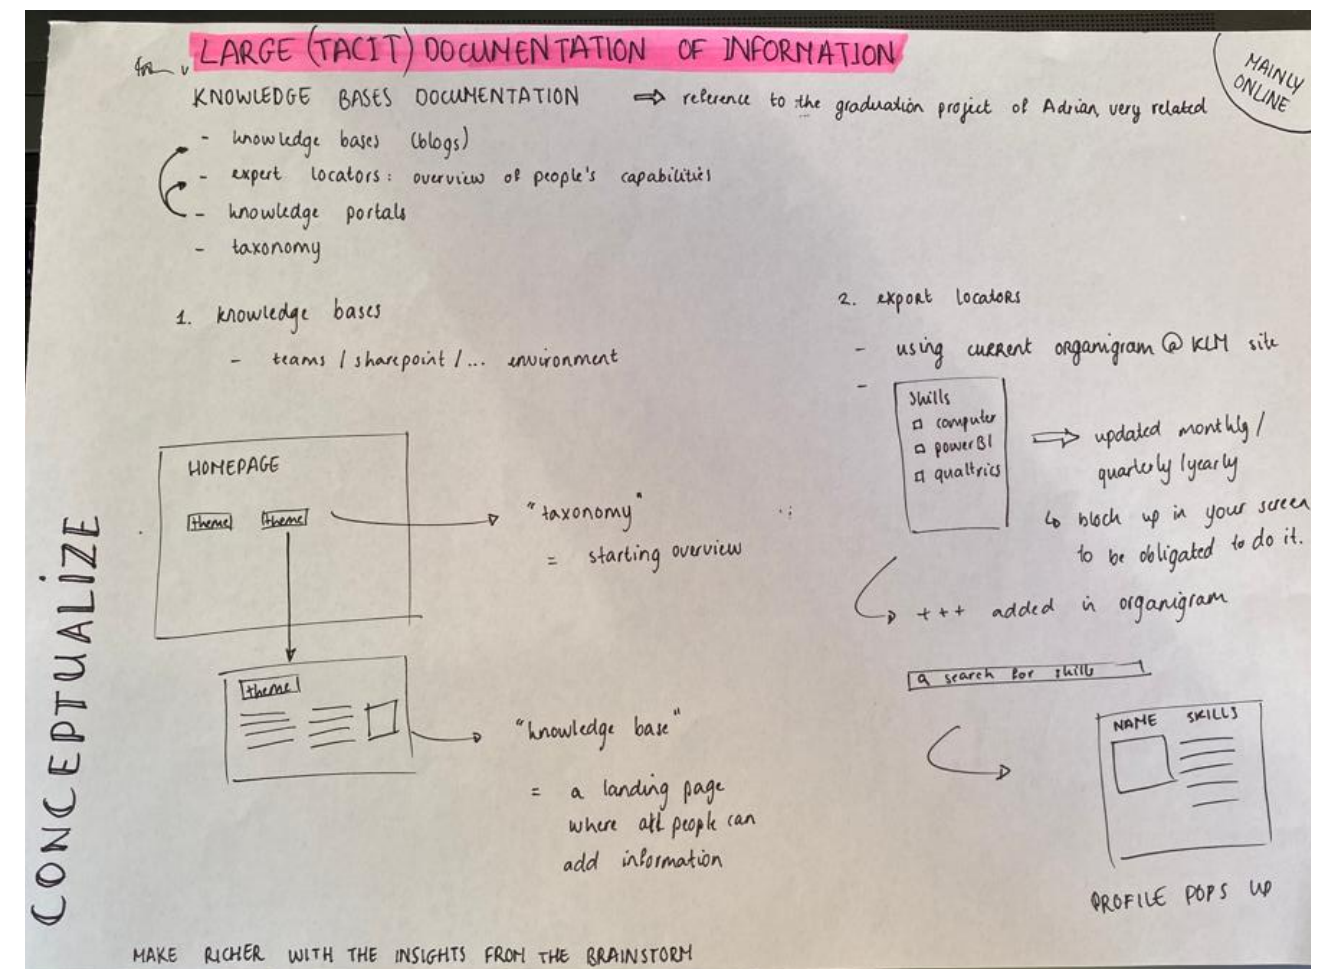 LARGE (TACIT) DOCUMENTATION OF INFORMATION
MAINLY
ONLINE
KNOWLEDGE BASES DOCUMENTATION ⇒ reference to the graduation project of Adrian, very related
- knowledge bases (blogs)
- expert locators: overview of people's capabilities
- knowledge portals
- taxonomy
1. knowledge bases
- teams / sharepoint / ... environment
HOMEPAGE
theme theme
"taxonomy"
= starting overview
theme
"knowledge base"
= a landing page
where all people can
add information
2. export locators
- using current organigram @ KLM site
-
Skills
□ computer
□ powerBI
□ qualtrics
⇒ updated monthly /
quarterly / yearly
↳ block up in your screen
to be obligated to do it.
+++ added in organigram
search for skills
NAME SKILLS
PROFILE POPS UP
CONCEPTUALIZE
MAKE RICHER WITH THE INSIGHTS FROM THE BRAINSTORM